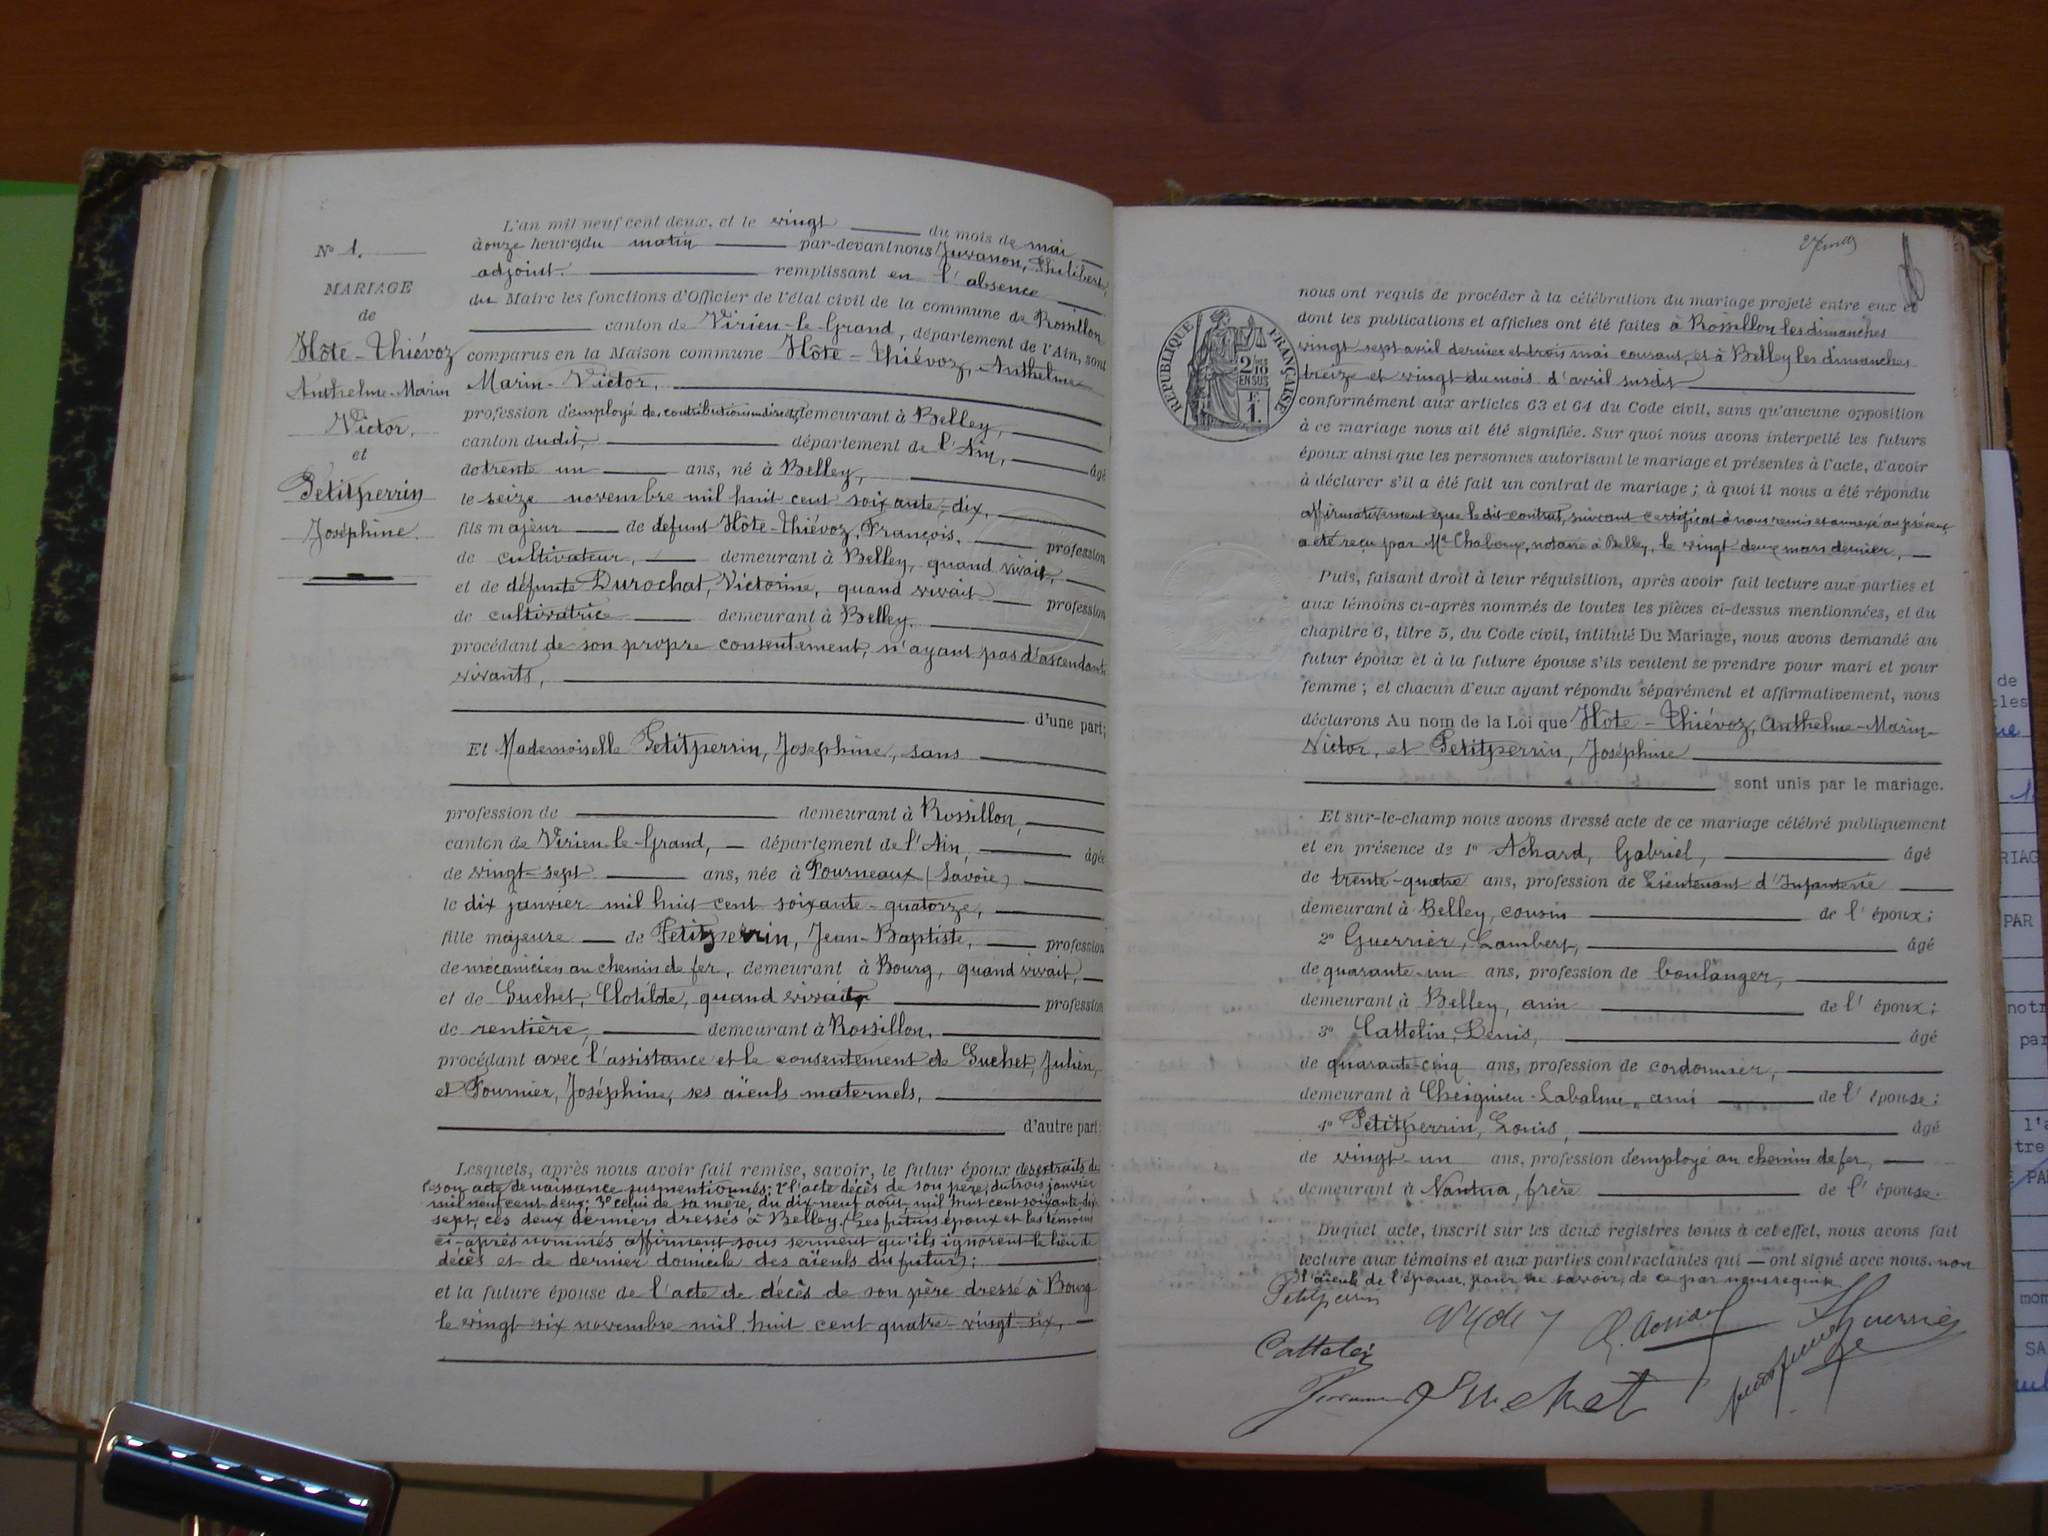 N° 1.
MARIAGE
de
Hôte-Thiévoz
Anthelme-Marin
Victor,
et
Petitperrin
Joséphine.
L'an mil neuf cent deux, et le vingt du mois de mai
à onze heures du matin par-devant nous Juvanon, Philibert,
adjoint. remplissant en l'absence
du Maire les fonctions d'Officier de l'état civil de la commune de Rossillon
canton de Virieu-le-Grand, département de l'Ain, sont
comparus en la Maison commune Hôte-Thiévoz, Anthelme
Marin-Victor,
profession d'employé des contributions indirectes, demeurant à Belley,
canton dudit, département de l'Ain, âgé
de trente un ans, né à Belley,
le seize novembre mil huit cent soixante-dix,
fils majeur de défunt Hôte-Thiévoz, François, profession
de cultivateur, demeurant à Belley, quand vivait,
et de défunte Durochat, Victorine, quand vivait profession
de cultivatrice demeurant à Belley,
procédant de son propre consentement, n'ayant pas d'ascendants
vivants,
d'une part;
Et Mademoiselle Petitperrin, Joséphine, sans
profession de demeurant à Rossillon,
canton de Virieu-le-Grand, département de l'Ain, âgée
de vingt-sept ans, née à Fourneaux (Savoie)
le dix janvier mil huit cent soixante-quatorze,
fille majeure de Petitperrin, Jean-Baptiste, profession
de mécanicien au chemin de fer, demeurant à Bourg, quand vivait,
et de Suchet, Clotilde, quand vivait, profession
de rentière, demeurant à Rossillon,
procédant avec l'assistance et le consentement de Suchet, Julien,
et Fournier, Joséphine, ses aïeuls maternels,
d'autre part;
Lesquels, après nous avoir fait remise, savoir, le futur époux des extraits de
1° son acte de naissance susmentionnés; 2° l'acte décès de son père, du trois janvier
mil neuf cent deux; 3° celui de sa mère, du dix-neuf août mil huit cent soixante-dix
sept, ces deux derniers dressés à Belley. (Les futurs époux et les témoins
ci-après nommés affirment sous serment qu'ils ignorent le lieu de
décès et de dernier domicile des aïeuls du futur);
et la future épouse de l'acte de décès de son père dressé à Bourg
le vingt-six novembre mil huit cent quatre-vingt-six,
nous ont requis de procéder à la célébration du mariage projeté entre eux et
dont les publications et affiches ont été faites à Rossillon les dimanches
vingt sept avril dernier et trois mai courant, et à Belley les dimanches
treize et vingt du mois d'avril susdit
RÉPUBLIQUE FRANÇAISE
2/10 EN SUS
1.
conformément aux articles 63 et 64 du Code civil, sans qu'aucune opposition
à ce mariage nous ait été signifiée. Sur quoi nous avons interpellé les futurs
époux ainsi que les personnes autorisant le mariage et présentes à l'acte, d'avoir
à déclarer s'il a été fait un contrat de mariage; à quoi il nous a été répondu
affirmativement et que le dit contrat, suivant certificat à nous remis et annexé au présent,
a été reçu par Me Chaboux, notaire à Belley, le vingt deux mars dernier,
Puis, faisant droit à leur réquisition, après avoir fait lecture aux parties et
aux témoins ci-après nommés de toutes les pièces ci-dessus mentionnées, et du
chapitre 6, titre 5, du Code civil, intitulé Du Mariage, nous avons demandé au
futur époux et à la future épouse s'ils veulent se prendre pour mari et pour
femme; et chacun d'eux ayant répondu séparément et affirmativement, nous
déclarons Au nom de la Loi que Hôte-Thiévoz, Anthelme-Marin-
Victor, et Petitperrin, Joséphine
sont unis par le mariage.
Et sur-le-champ nous avons dressé acte de ce mariage célébré publiquement
et en présence de 1° Achard, Gabriel, âgé
de trente-quatre ans, profession de Lieutenant d'Infanterie
demeurant à Belley, cousin de l'époux;
2° Guerrier, Lambert, âgé
de quarante-un ans, profession de boulanger,
demeurant à Belley, ami de l'époux;
3° Cattelin, Denis, âgé
de quarante-cinq ans, profession de cordonnier,
demeurant à Cheignieu-Labalme, ami de l'épouse;
4° Petitperrin, Louis, âgé
de vingt-un ans, profession d'employé au chemin de fer,
demeurant à Nantua, frère de l'épouse.
Duquel acte, inscrit sur les deux registres tenus à cet effet, nous avons fait
lecture aux témoins et aux parties contractantes qui ont signé avec nous. non
l'aïeule de l'épouse, pour ne savoir, de ce par nous requise
Petitperrin
Guerrier
Cattelin
Suchet